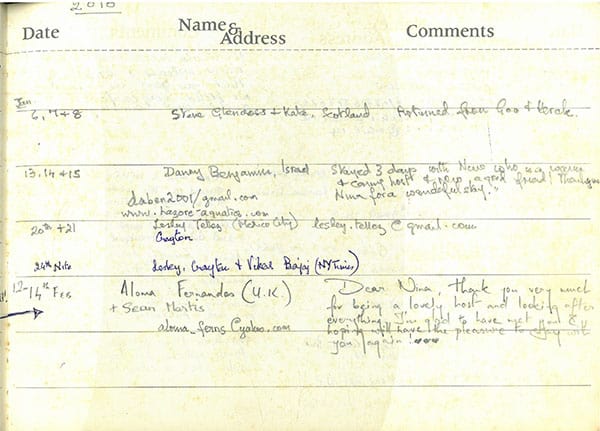 2010
Date Name & Address Comments
Jan
6, 7+8 Steve Glendoss + Kate, Scotland Returned from Goa & Kerala.
13, 14 +15 Danny Benjamin, Israel Stayed 3 days with Nina who is a warm
& caring host & now a good friend! Thank you
Nina for a wonderful stay."
daben2001/gmail.com
www.hazore-aquatics.com
20th +21 Lesley Tellez (Mexico City) lesley.tellez@gmail.com
Crayton
24th Nite Lesley, Crayton & Vikas Bajaj (NYTimes)
12-
14th Feb Aloma Fernandes (U.K.) Dear Nina, thank you very much
+ Sean Martis for being a lovely host and looking after
everything. I'm glad to have met you &
aloma_ferns@yahoo.com hoping will have the pleasure to stay with
you again!